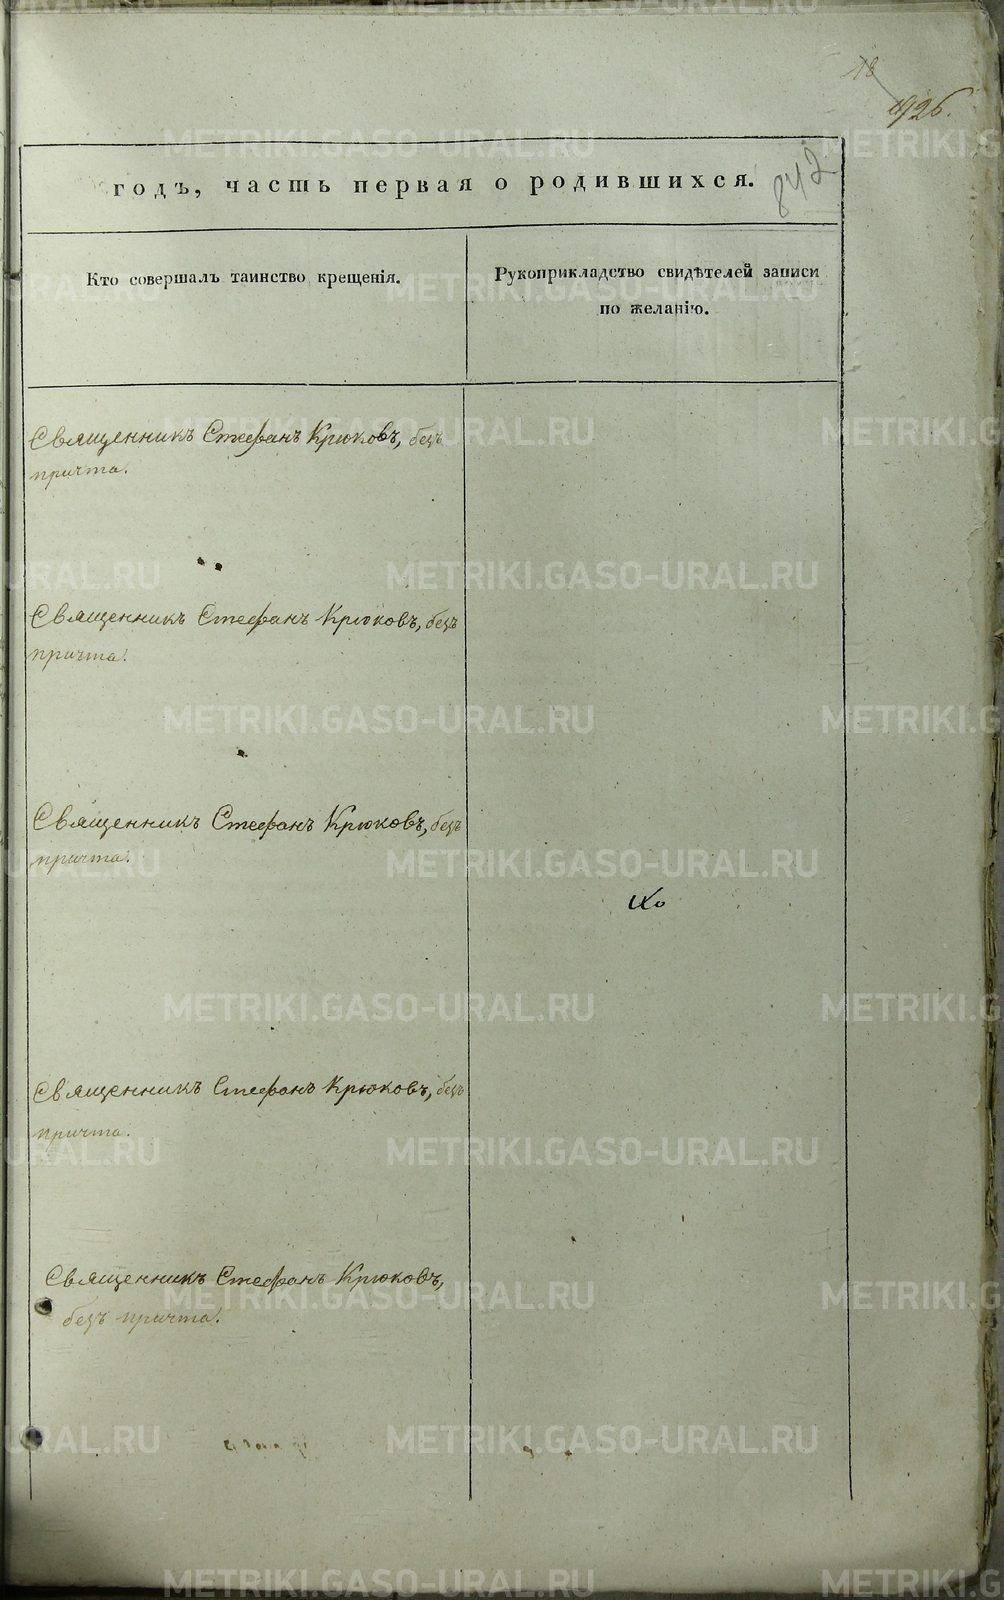 18
926.
842
годъ, часть первая о родившихся.
Кто совершалъ таинство крещенія.
Рукоприкладство свидѣтелей записи
по желанію.
Священникъ Стефанъ Крюковъ, безъ
причта.
Священникъ Стефанъ Крюковъ, безъ
причта.
Священникъ Стефанъ Крюковъ, безъ
причта.
Священникъ Стефанъ Крюковъ, безъ
причта.
Священникъ Стефанъ Крюковъ,
безъ причта.
METRIKI.GASO-URAL.RU